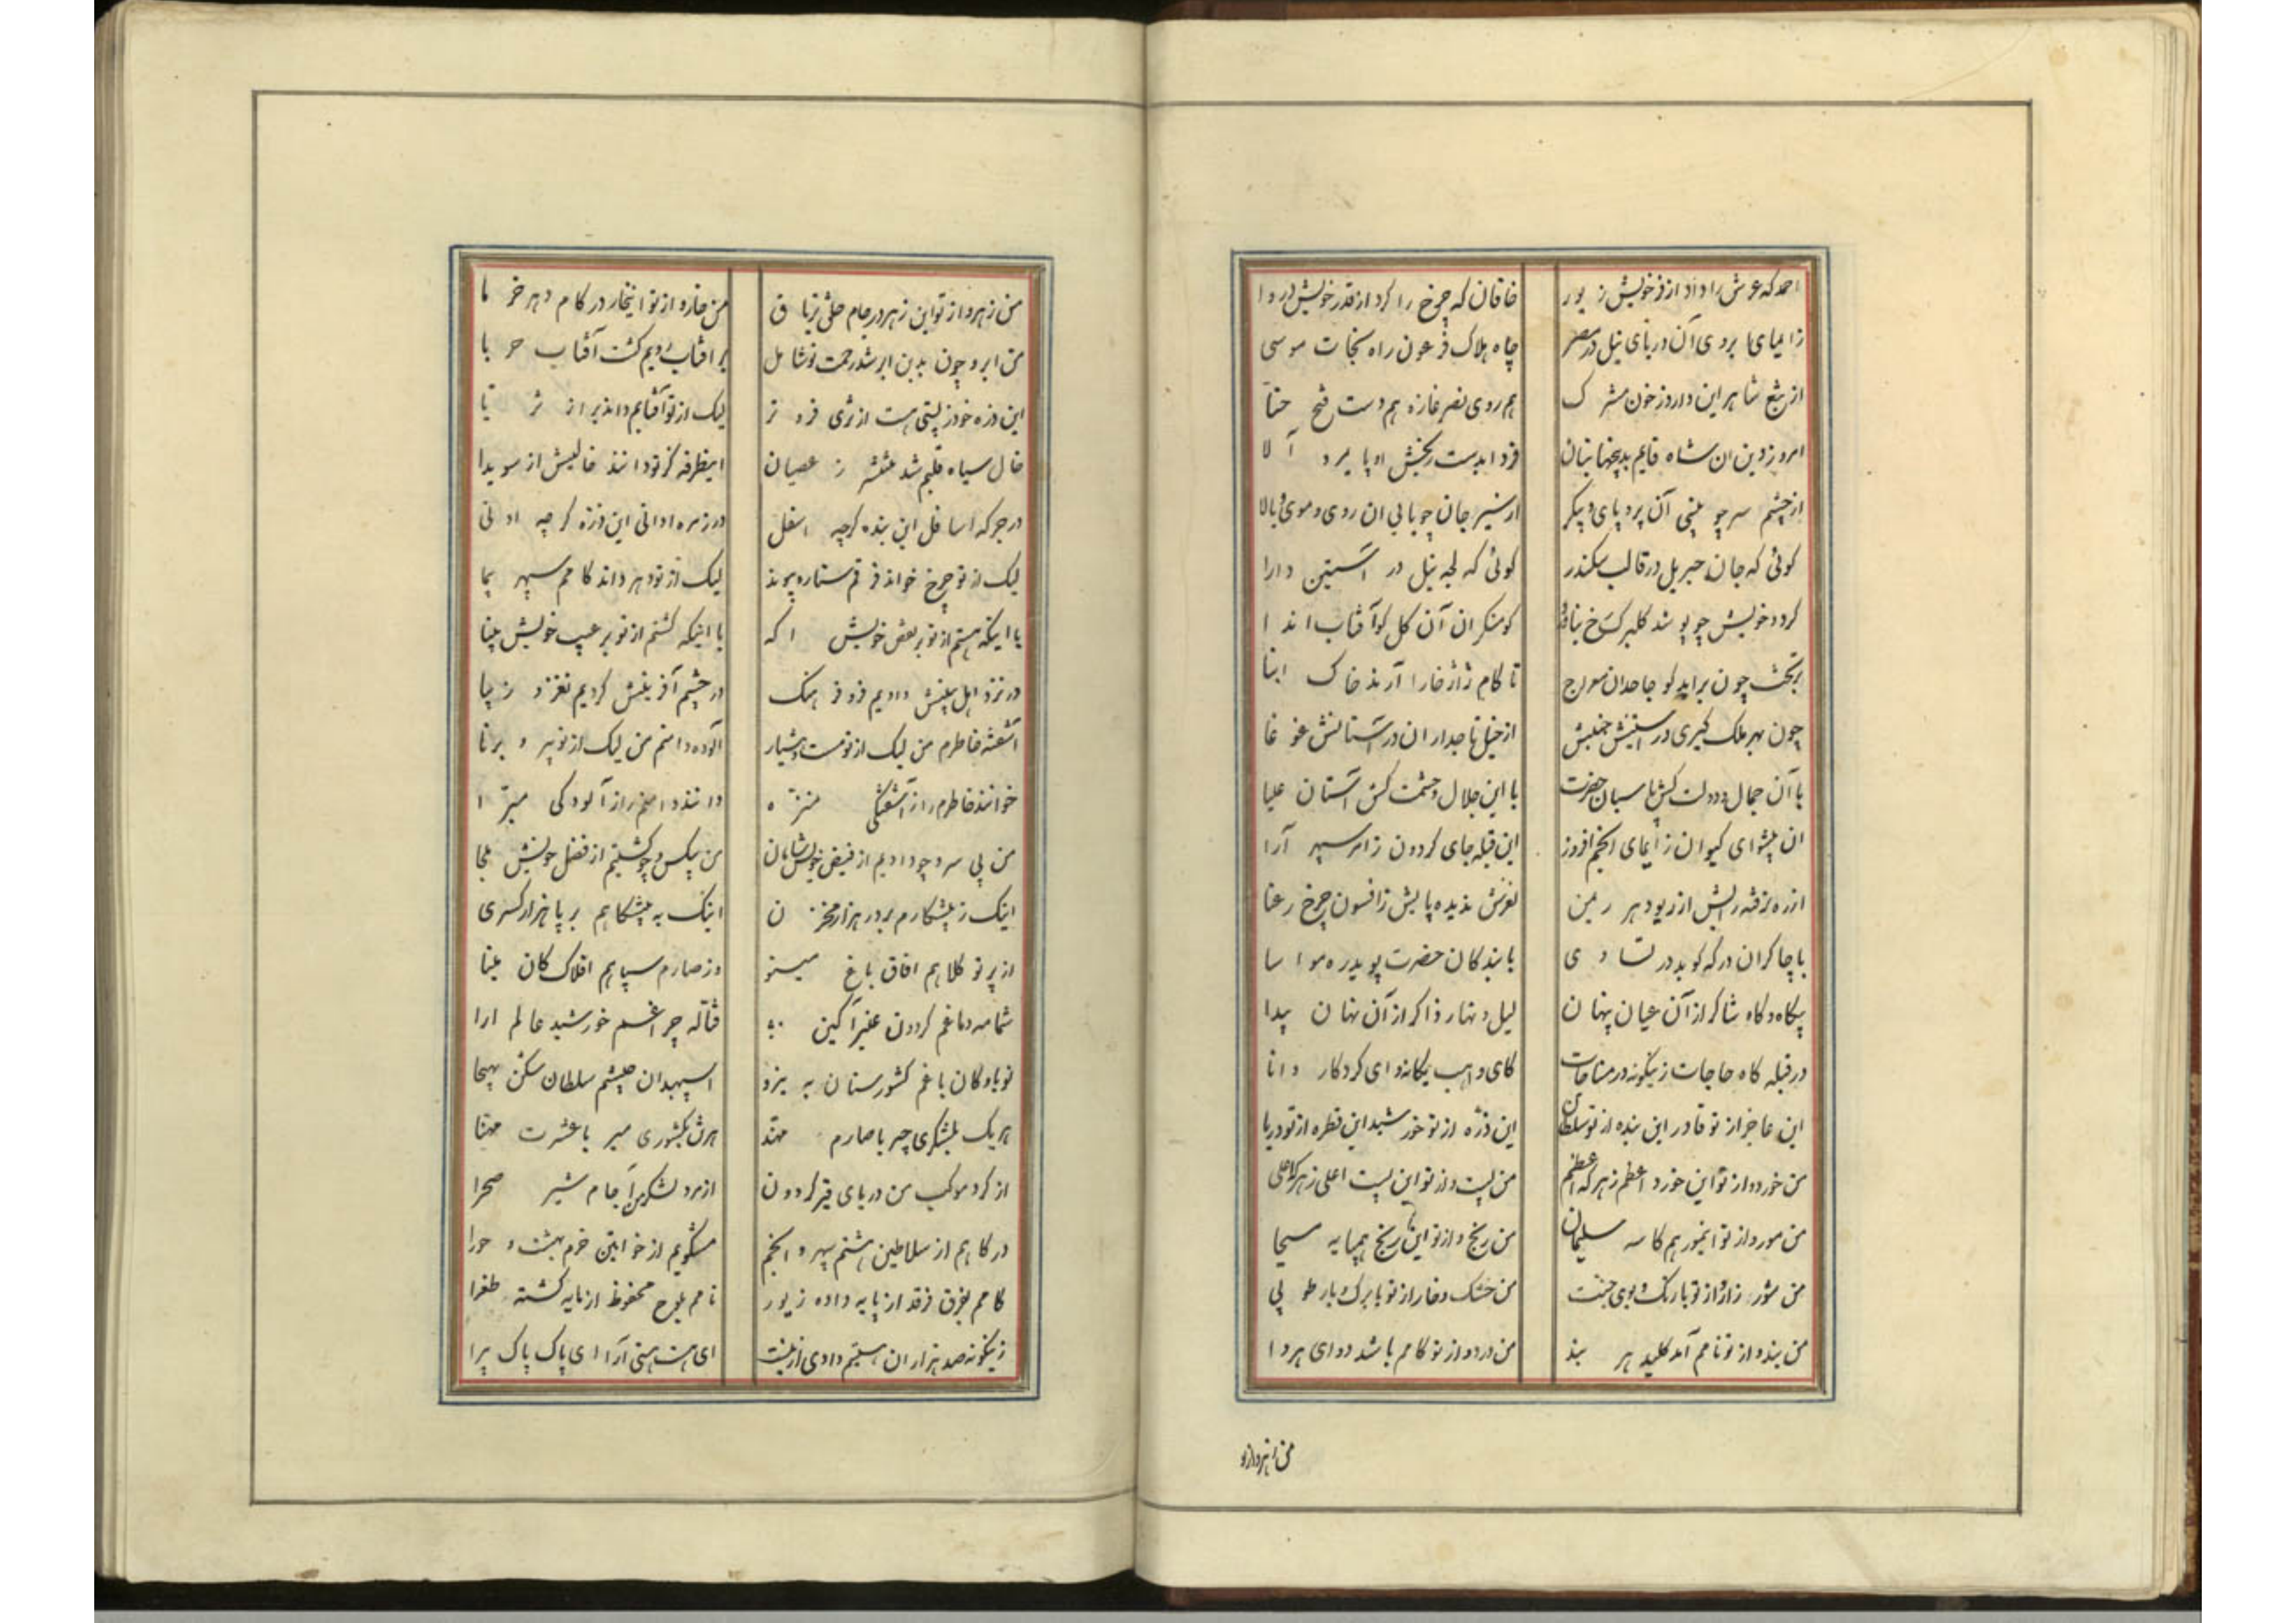 احمد که عرش را داد از فر خویش زیور خاقان که چرخ را کرد از قدر خویش دروا
زایمای ابروی آن دریای نیل در مصر چاه هلاک فرعون راه نجات موسی
از تیغ شاهر این دارد ز خون مشرک هم روی نصر غازه هم دست فتح حنا
امروز دین ان شاه قایم به پنجها بنیان فردا بدست بخش او پا
از چشم سر چو بینی آن پر و پای و پیکر از سیر جان چو یابی ان روی و موی و بالا
کوئی که جان جبریل در قالب سکندر کوئی که لجه نیل در آستین دارا
کو منکران آن کل کو آفتاب اندا
بر تخت چون براید کو جاحدان معراج تا کام ژاژخا را آرند خاک انبا
چون بهر ملک کیری در استینش جنبش از خیل تاجداران در آستانش غوغا
با آن جمال و دولت کش پاسبان حضرت با این جلال و حشمت کش آستان علیا
ان پیشوای کیوان زایمای انجم افروز این قبله جای کردون زامر سپهر آرا
از ره نرفته رایش از ریو دهر ریمن لغزش ندیده پایش زافسون چرخ رعنا
با چاکران درکه کوید در تساوی با بندکان حضرت پوید ره مواسا
بیکاه و کاه شاکر از آن عیان پنهان لیل و نهار ذاکر از آن نهان پیدا
در قبله کاه حاجات زینکونه در مناجات کای واهب یکانه وای کردکار دانا
این عاجز از تو قادر این بنده از تو سلطان این ذره از تو خورشید این قطره از تو دریا
من خورد و از تو این خورد اعظم ز هر که اعظم من پست و از تو این پست اعلی ز هر که اعلی
من مور و از تو اینمور هم کاسه سلیمان من رنج و از تو این رنج همپایه مسیحا
من شوره زار و از تو با رنک و بوی جنت من خشک و خار از تو با برک و بار طوبی
من بند و از تو نامم آمد کلید هر بند من درد و از تو کامم باشد دوای هر دا
من زهر و از تو
من زهر و از تو این زهر در جام خلق تریاق من خار و از تو این خار در کام دهر خرما
من ابر و چون بدین ابر شد رحمت تو شامل بر افتاب رویم کشت آفتاب حربا
این ذره خود ز پستی هست از ثری فروتر لیک از تو آفتابم داند بر از ثریا
خال سیاه قلبم شد منتشر ز عصیان اینطرفه کز تو دانند خالیش از سویدا
در جرکه اسافل این بنده کرچه اسفل در زمره ادانی این ذره کرچه ادنی
لیک از تو چرخ خواند فرقم ستاره پیوند لیک از تو دهر داند کامم سپهر پیما
با اینکه هستم از تو بر نقص خویش اکه با اینکه کشتم از تو بر عیب خویش بینا
در نزد اهل بینش دادیم فر و فرهنک در چشم آفرینش کردیم نغز و زیبا
آشفته خاطرم من لیک از تو مست و هشیار آلوده دامنم من لیک از تو پیر و برنا
خوانند خاطرم را ز آشفتگی منزه دانند دامنم را ز آلودکی مبرا
من بی سر و چو دادیم از فیض خویش سامان من بیکس و چو کشتیم از فضل خویش ملجا
اینک ز پیشکارم بر در هزار مخزن اینک به پیشکاهم بر پا هزار کسری
از پرتو کلاهم افاق باغ مینو وز صارم سپاهم افلاک کان مینا
شمامه دماغم کردون عنبر آکین فتاله چراغم خورشید عالم ارا
نوباوکان باغم کشورستان به نیرو اسپهبدان جیشم سلطان شکن بهیجا
هر یک بلشکری چیر با صارم مهند هر شه بکشوری میر با عشرت مهنا
از کرد موکب من دریای قیر کردون از مرد لشکر من آجام شیر صحرا
درکاهم از سلاطین هشتم سپهر و انجم مشکویم از خواتین خرم بهشت و حورا
کامم بفرق فرقد از پایه داده زیور نامم بلوح محفوظ از مایه کشته طغرا
زینکونه صد هزاران هستیم دادی از نیست ای هست هستی آرا ای پاک پاک پیرا